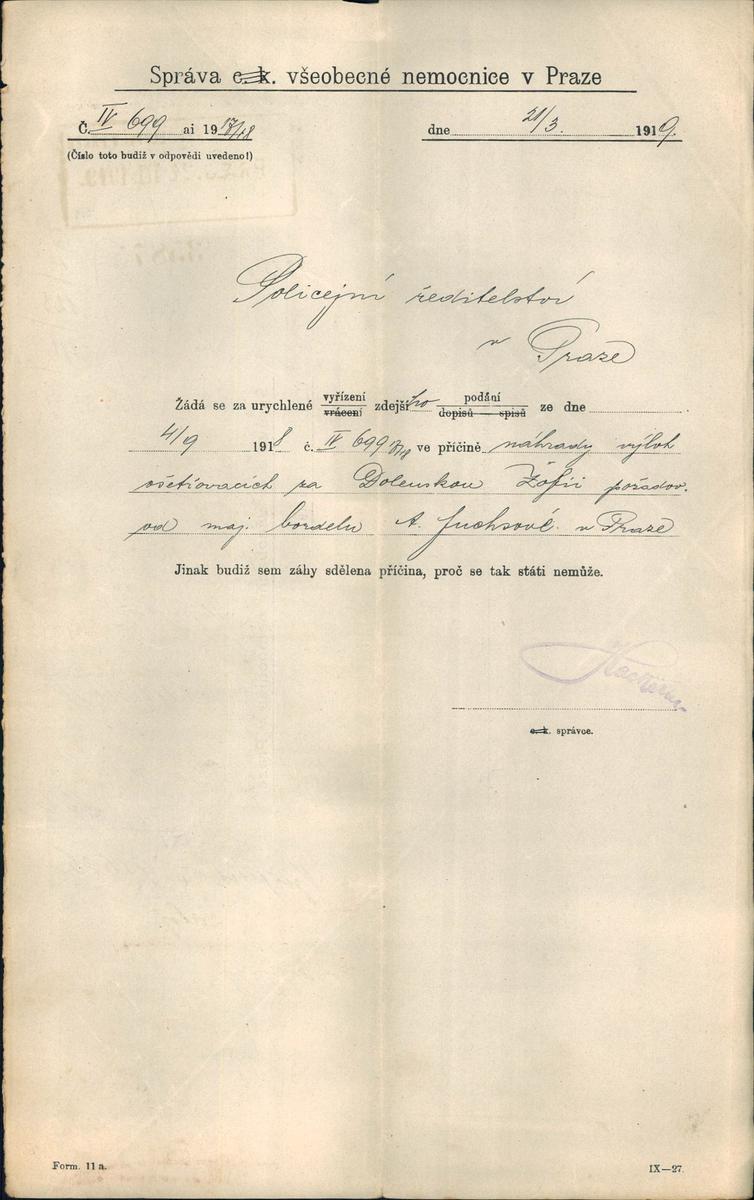 Správa c. k. všeobecné nemocnice v Praze
Č. IV 699 ai 1917/18
dne 21/3. 1919.
(Číslo toto budiž v odpovědi uvedeno!)
Policejní ředitelství
v Praze
Žádá se za urychlené vyřízení vrácení zdejšího podání dopisů — spisů ze dne
4/9 1918 č. IV 699 17/18 ve příčině náhrady výloh
ošetřovacích za Dolenskou Žofii požadov.
od maj. bordelu A. Fuchsové v Praze
Jinak budiž sem záhy sdělena příčina, proč se tak státi nemůže.
c. k. správce.
Form. 11 a.
IX—27.